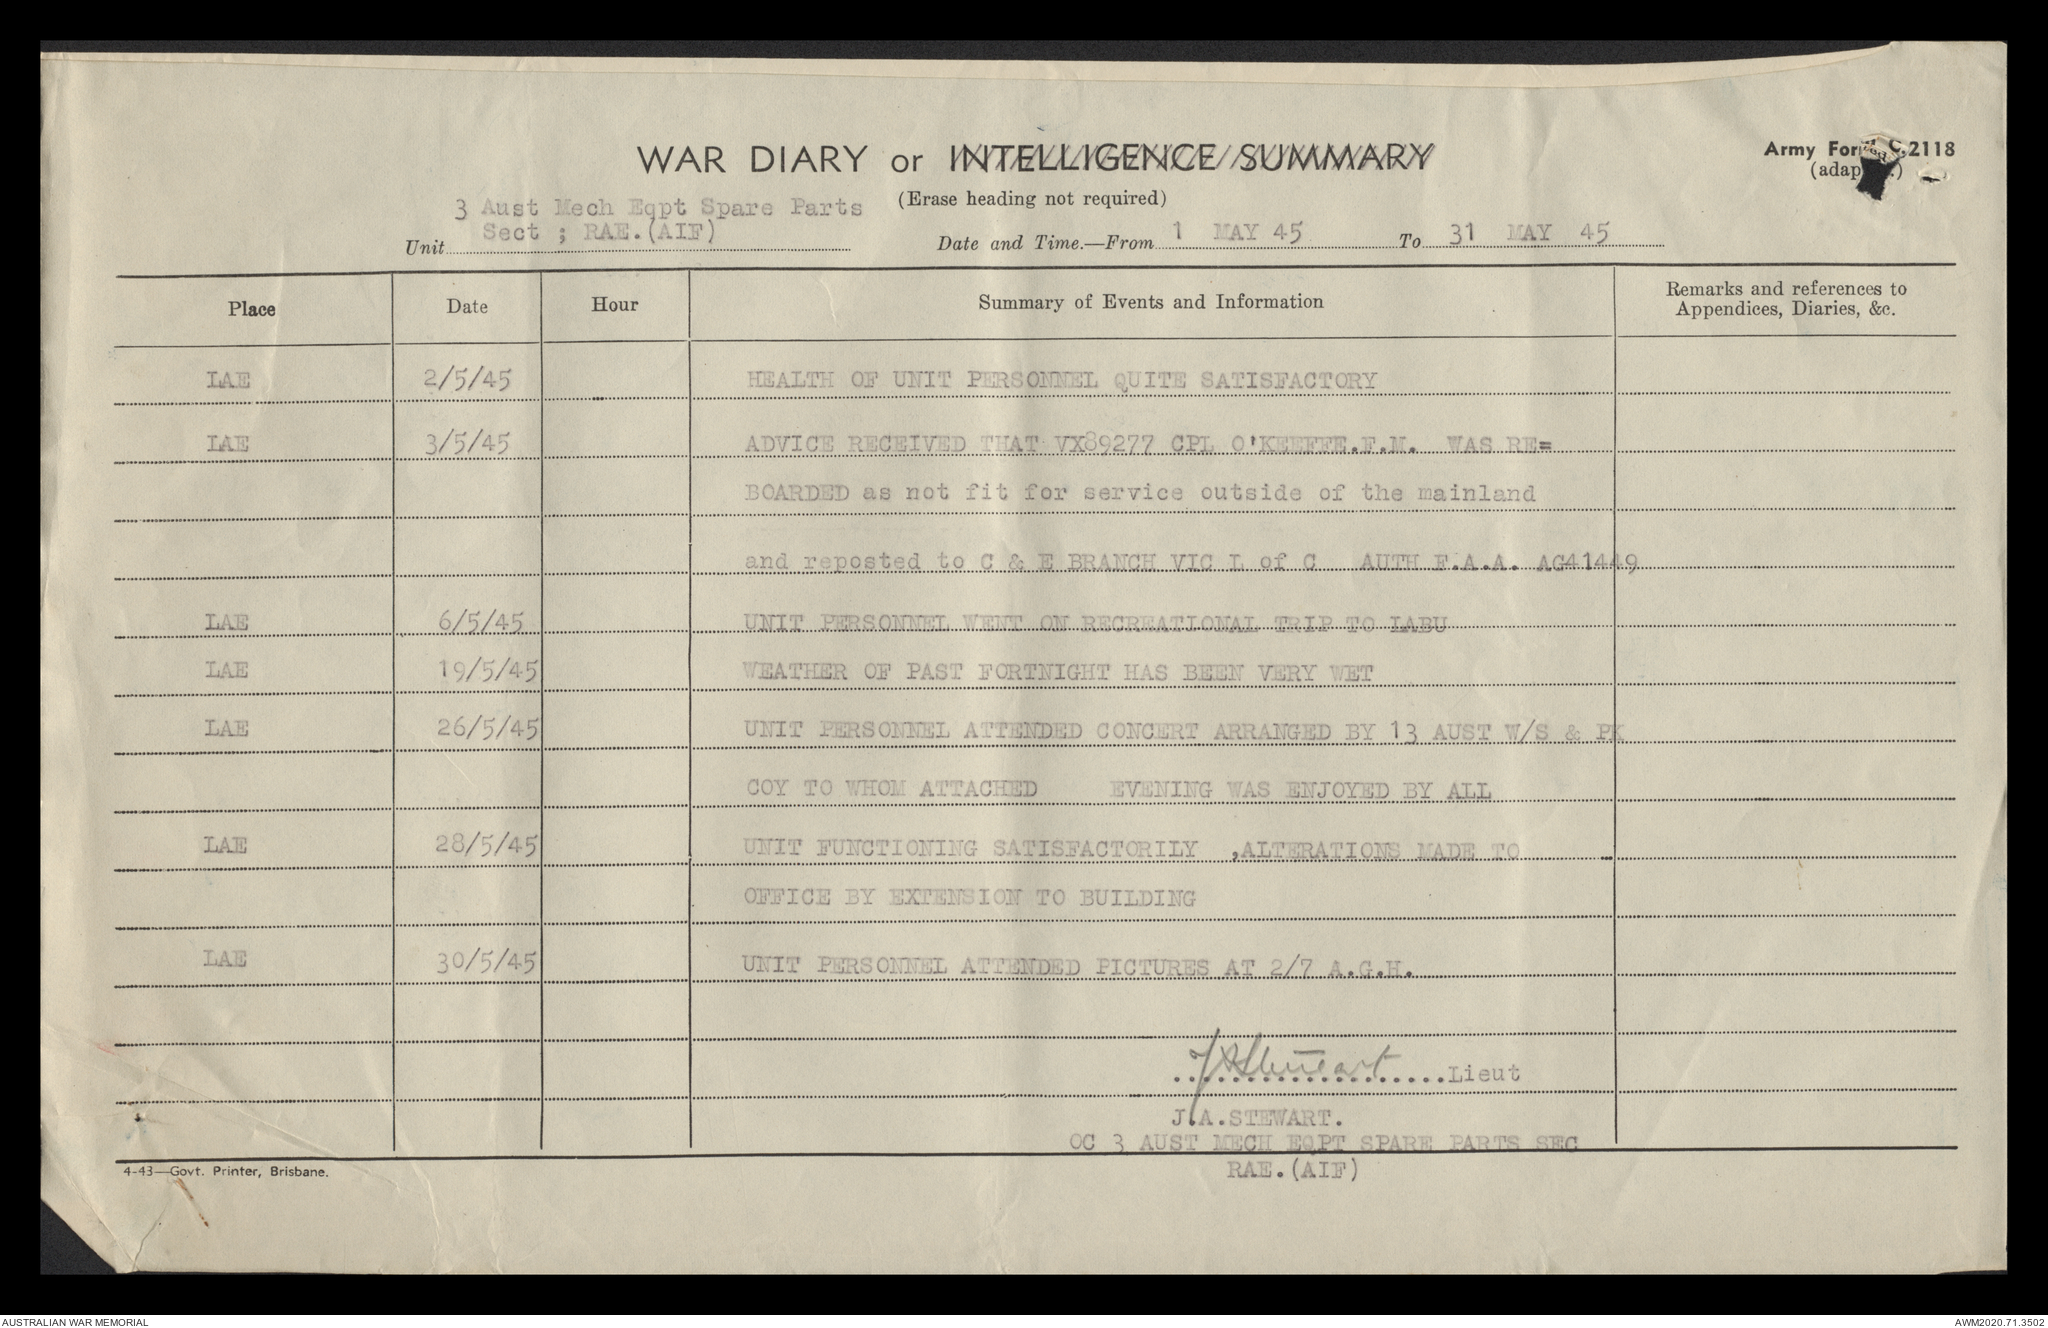 WAR DIARY or INTELLIGENCE SUMMARY
Army Form C.2118
(Erase heading not required)
3 Aust Mech Eqpt Spare Parts
Unit Sect ; RAE.(AIF)
Date and Time.—From 1 MAY 45 To 31 MAY 45
Place Date Hour Summary of Events and Information Remarks and references to
Appendices, Diaries, &c.
LAE 2/5/45 HEALTH OF UNIT PERSONNEL QUITE SATISFACTORY
LAE 3/5/45 ADVICE RECEIVED THAT VX89277 CPL O'KEEFFE.F.M. WAS RE=
BOARDED as not fit for service outside of the mainland
and reposted to C & E BRANCH VIC L of C AUTH F.A.A. AG41449
LAE 6/5/45 UNIT PERSONNEL WENT ON RECREATIONAL TRIP TO LABU
LAE 19/5/45 WEATHER OF PAST FORTNIGHT HAS BEEN VERY WET
LAE 26/5/45 UNIT PERSONNEL ATTENDED CONCERT ARRANGED BY 13 AUST W/S & PK
COY TO WHOM ATTACHED EVENING WAS ENJOYED BY ALL
LAE 28/5/45 UNIT FUNCTIONING SATISFACTORILY ,ALTERATIONS MADE TO
OFFICE BY EXTENSION TO BUILDING
LAE 30/5/45 UNIT PERSONNEL ATTENDED PICTURES AT 2/7 A.G.H.
JAStewart Lieut
J.A.STEWART.
OC 3 AUST MECH EQPT SPARE PARTS SEC
RAE.(AIF)
4-43—Govt. Printer, Brisbane.
AUSTRALIAN WAR MEMORIAL
AWM2020.71.3502